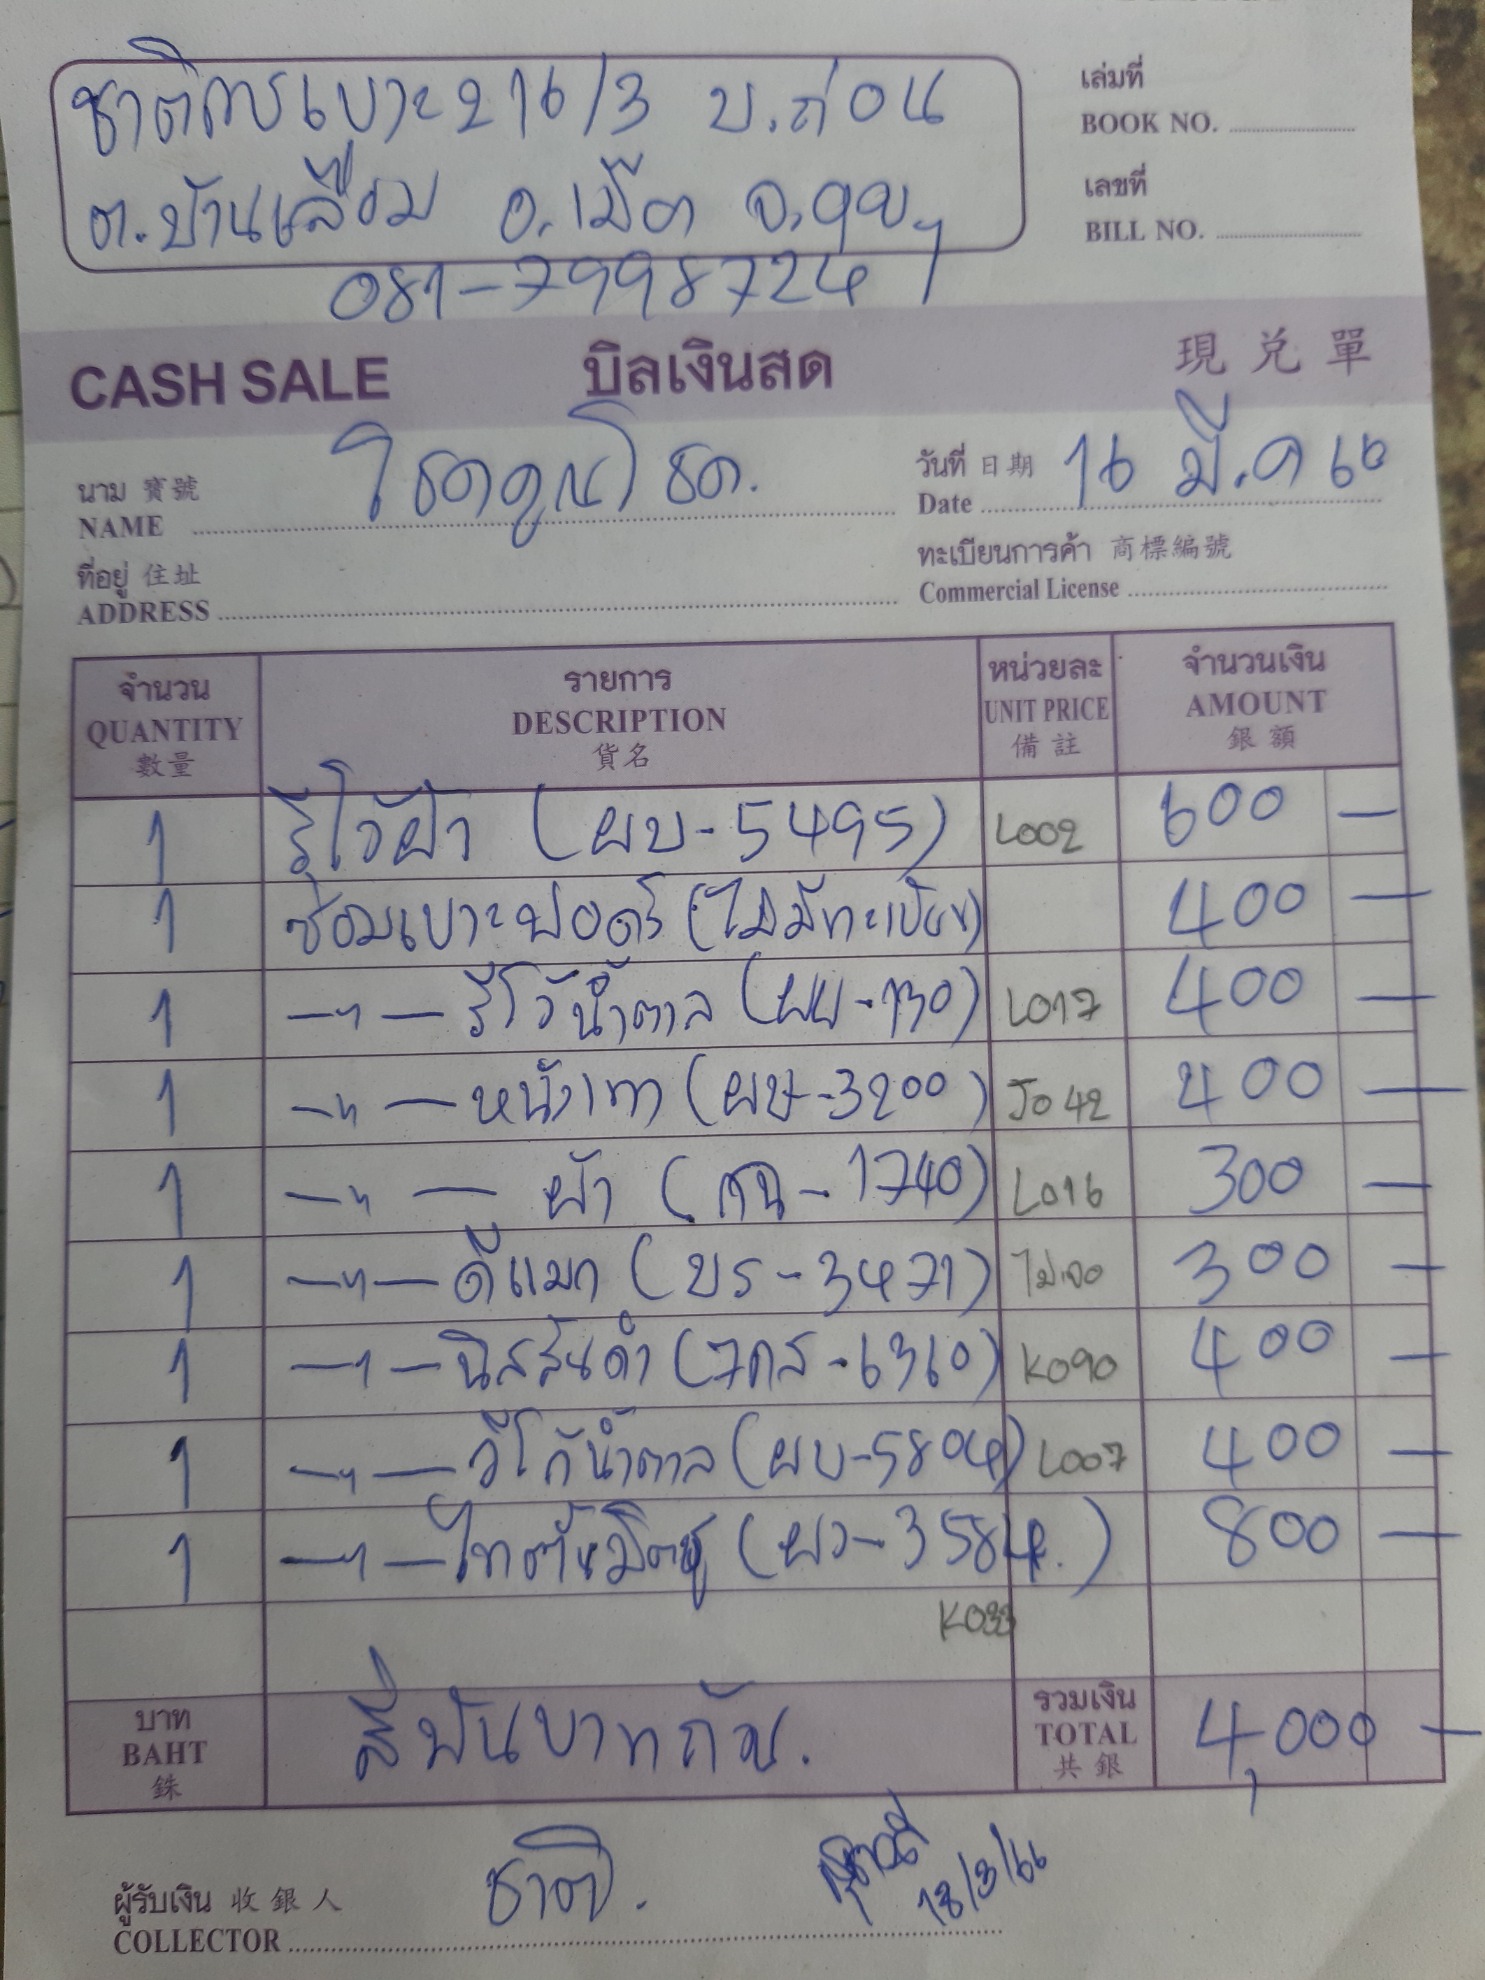 ชาติการเบาะ 216/3 บ.ถ่อน
ต.บ้านเลื่อม อ.เมือง จ.อุดรฯ
081-7998724
เล่มที่
BOOK NO.
เลขที่
BILL NO.
CASH SALE บิลเงินสด 現兌單
นาม 寶號
NAME โชคคูณโชค.
วันที่ 日期
Date 16 มี.ค 66
ที่อยู่ 住址
ADDRESS
ทะเบียนการค้า 商標編號
Commercial License
จำนวน QUANTITY 數量
รายการ DESCRIPTION 貨名
หน่วยละ UNIT PRICE 備註
จำนวนเงิน AMOUNT 銀額
1 รีโว้ฟ้า (ผบ-5495) L002 600 —
1 ซ่อมเบาะฟอร์ด (ไม่มีทะเบียน) 400 —
1 —"— รีโว้น้ำตาล (ผผ-130) L017 400 —
1 —"— หนังเทา (ผษ-3200) J042 400 —
1 —"— ผ้า (กฉ-1740) L016 300 —
1 —"— ดีแมก (บร-3471) ไม่เจอ 300 —
1 —"— นิสสันดำ (7กส-6360) K090 400 —
1 —"— วีโก้น้ำตาล (ผบ-5804) L007 400 —
1 —"— ไทตันมิตซู (ผว-3584.) 800 —
K033
บาท BAHT 銖
สี่พันบาทถ้วน.
รวมเงิน TOTAL 共銀
4,000 —
ผู้รับเงิน 收銀人
COLLECTOR ชาติ.
18/3/66